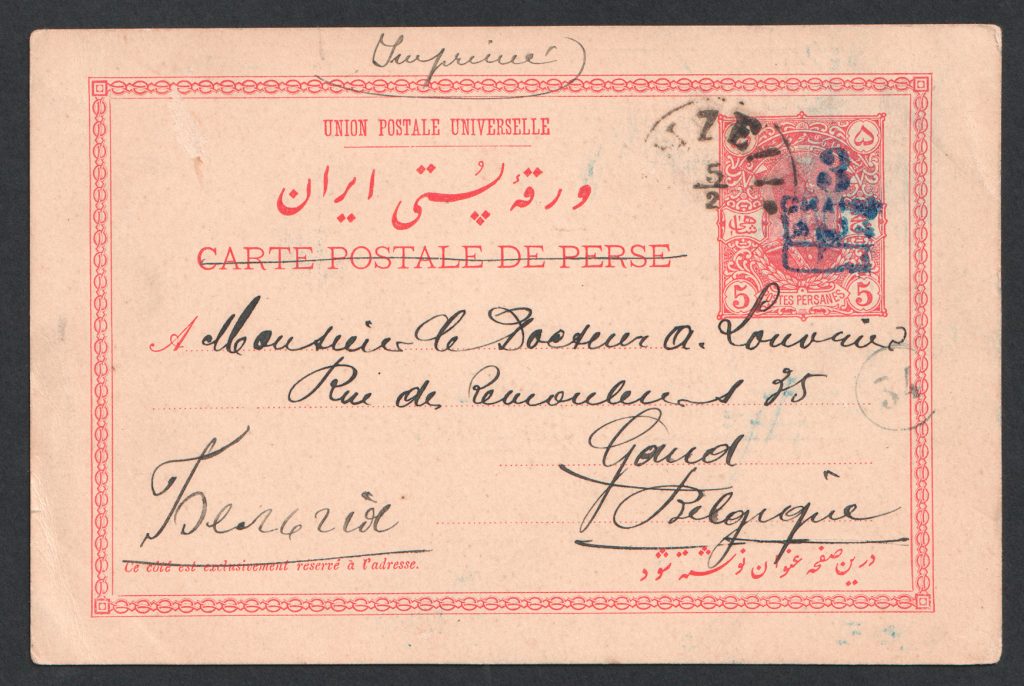 Imprimé
UNION POSTALE UNIVERSELLE
ورقهٔ پُستی ایران
CARTE POSTALE DE PERSE
NZELI
5
2
۵
3
5 POSTES PERSANES 5
A Monsieur le Docteur A.
Rue de 35
Gand
Belgique
Бельгія
Ce côté est exclusivement réservé à l'adresse.
درین صفحه عنوان نوشته شود
34